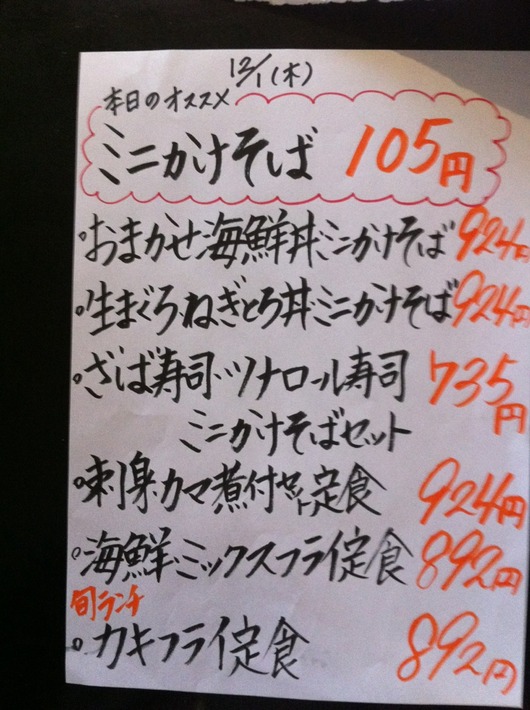 12/1(木)
本日のオススメ
ミニかけそば 105円
・おまかせ海鮮丼・ミニかけそば 924円
・生まぐろねぎとろ丼・ミニかけそば 924円
・さば寿司・ツナロール寿司 735円
ミニかけそばセット
・刺身・カマ煮付セット定食 924円
・海鮮ミックスフライ定食 892円
旬ランチ
・カキフライ定食 892円